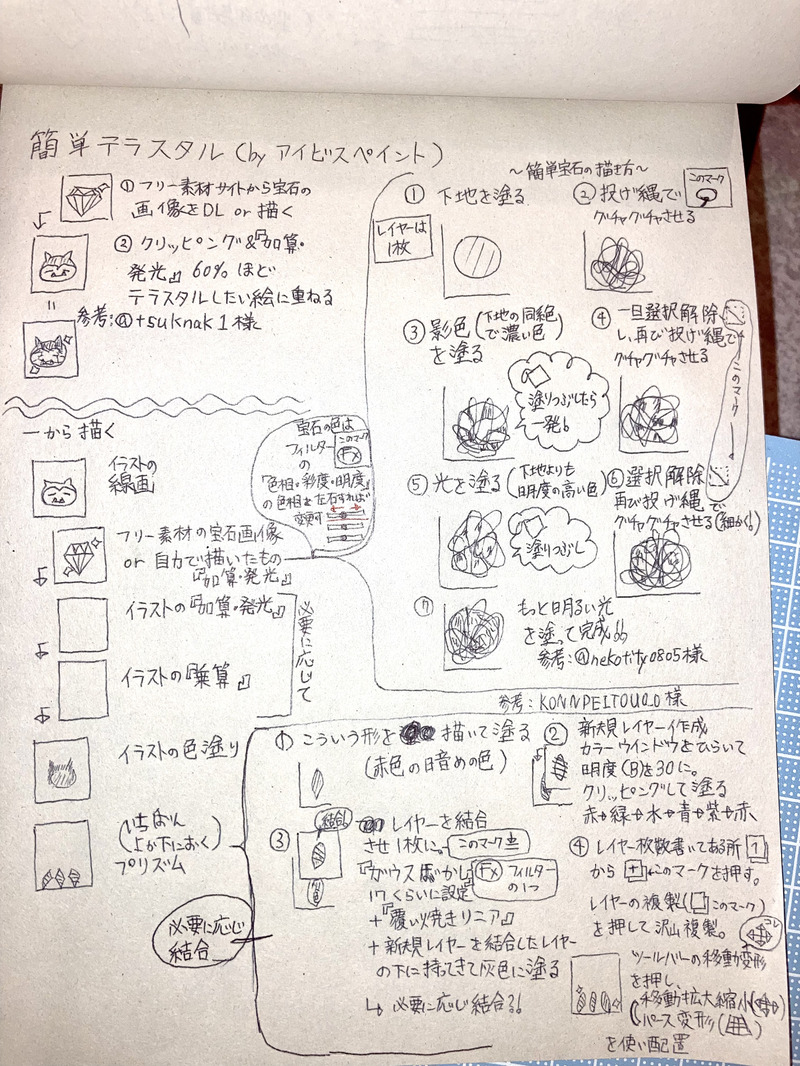 簡単テラスタル(by アイビスペイント)
①フリー素材サイトから宝石の
画像をDL or 描く
②クリッピング&『加算・
発光』60%ほど
テラスタルしたい絵に重ねる
参考:@tsuknak1様
〜簡単宝石の描き方〜
レイヤーは
1枚
① 下地を塗る
② 投げ縄で
グチャグチャさせる
このマーク
③ 影色(下地の同系色
で濃い色)
を塗る
塗りつぶしたら
一発!
④ 一旦選択解除
し、再び投げ縄で
グチャグチャさせる
このマーク
⑤ 光を塗る(下地よりも
明度の高い色)
塗りつぶし
⑥ 選択解除
再び投げ縄で
グチャグチャさせる(細かく!)
⑦ もっと明るい光
を塗って完成!!
参考:@nekotity0805様
一から描く
イラストの
線画
フリー素材の宝石画像
or 自力で描いたもの
『加算・発光』
イラストの『加算・発光』
イラストの『乗算』
必要に応じて
イラストの色塗り
いちばん
(上か下におく)
プリズム
必要に応じ
結合
宝石の色は
フィルター
このマーク
Fx
の
『色相・彩度・明度』
の色相を左右すれば
変更可
参考:KONNPEITOU0.0様
① こういう形を描いて塗る
(赤色の暗めの色)
② 新規レイヤー作成
カラーウインドウをひらいて
明度(B)を30に。
クリッピングして塗る
赤→緑→水→青→紫→赤
③
結合!
レイヤーを結合
させ1枚に。このマーク
『ガウスぼかし』
Fx フィルター
の1つ
17くらいに設定
+『覆い焼きリニア』
+新規レイヤーを結合したレイヤー
の下に持ってきて灰色に塗る
↳ 必要に応じ結合!!
④ レイヤー枚数書いてある所 1
から + ←このマークを押す。
レイヤーの複製(このマーク)
を押して沢山複製。
コレ
ツールバーの移動変形
を押し、
(移動拡大縮小
パース変形)
を使い配置